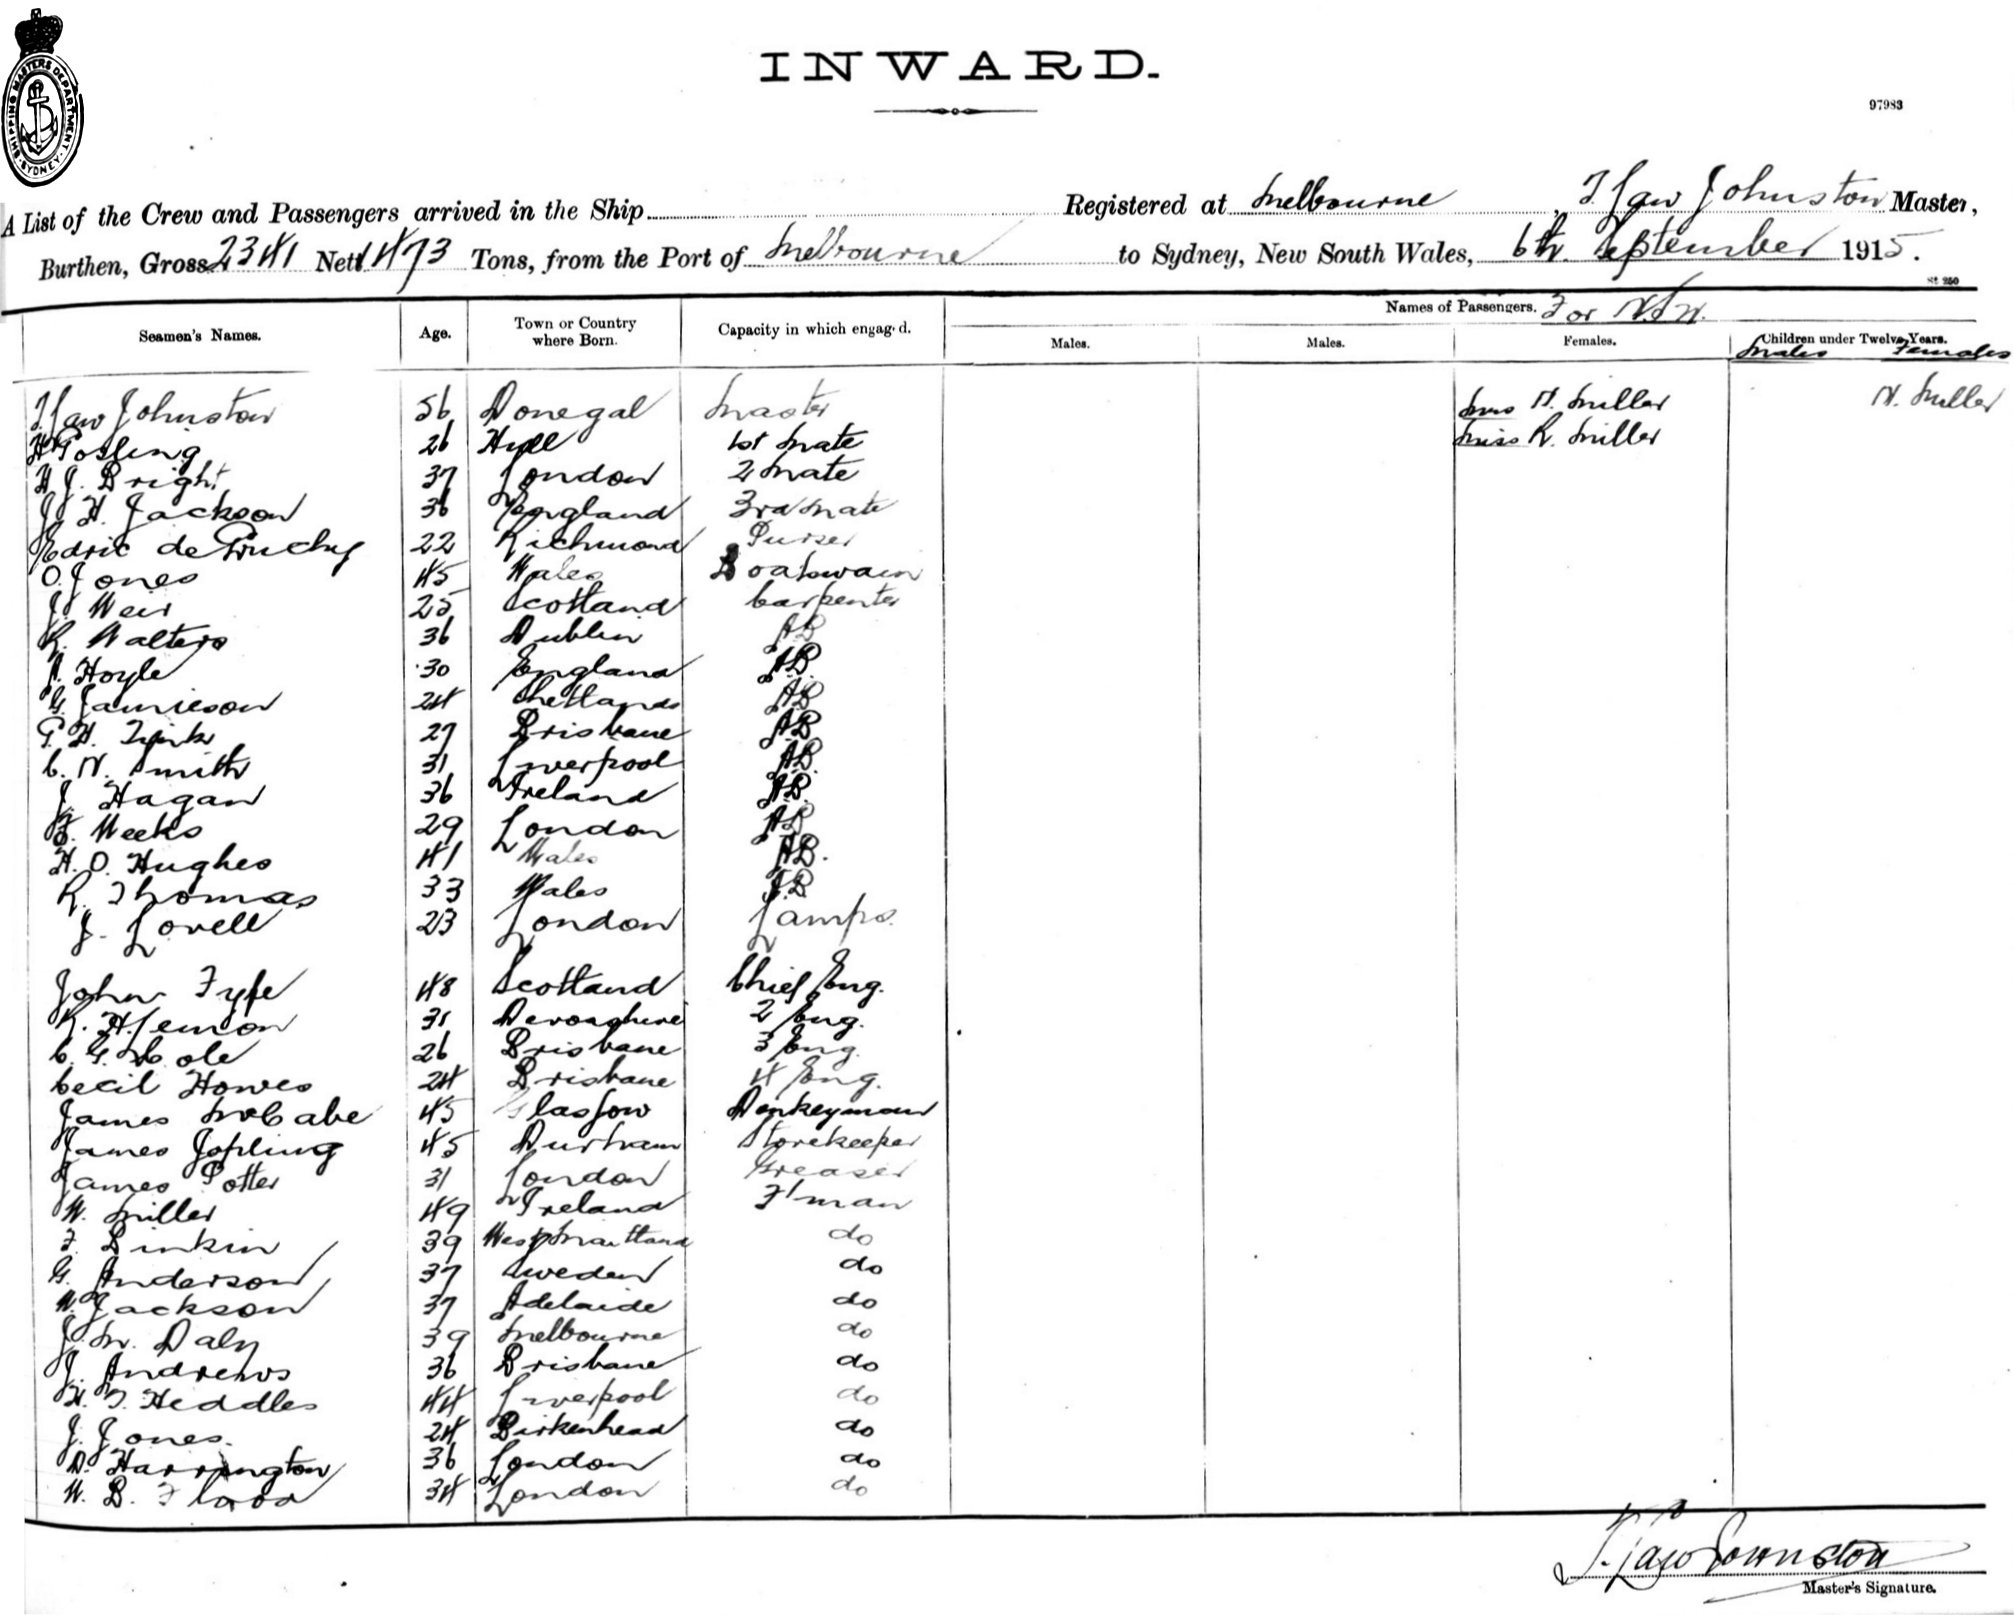 SHIPPING MASTERS DEPARTMENT. SYDNEY
INWARD.
97983
A List of the Crew and Passengers arrived in the Ship Registered at Melbourne, T Law Johnston Master,
Burthen, Gross 2341 Nett 1473 Tons, from the Port of Melbourne to Sydney, New South Wales, 6th. September 1915.
St 250
Names of Passengers. For N.S.W.
Seamen's Names. Age. Town or Country where Born. Capacity in which engag·d. Males. Males. Females. Children under Twelve Years.
Males Females
T. Law Johnston 56 Donegal Master Mrs N. Miller N. Miller
H Gosling 26 Hull 1st Mate Miss R. Miller
H J. Bright 37 London 2 Mate
J. H. Jackson 36 England 3rd Mate
Edric de Gruchy 22 Richmond Purser
O. Jones 45 Wales Boatswain
J. Weir 25 Scotland Carpenter
R. Walters 36 Dublin AB
A. Hoyle 30 England A.B.
G. Jamieson 24 Shetlands AB
G. H. 27 Brisbane AB
C. N. Smith 31 Liverpool AB.
J. Hagan 36 Ireland A.B.
F. Weeks 29 London AB
H. O. Hughes 41 Wales AB.
R. Thomas 33 Wales AB
J. Lovell 23 London Lamps.
John Fyfe 48 Scotland Chief Eng.
R. H. Lemon 31 Devonshire 2 Eng.
C. G. Cole 26 Brisbane 3 Eng.
Cecil Howes 24 Brisbane 4 Eng.
James McCabe 45 Glasgow Donkeyman
James Jopling 45 Durham Storekeeper
James Potter 31 London Greaser
W. Miller 49 Ireland F'man
F. Binkin 39 West Maitland do
G. Anderson 37 Sweden do
W. Jackson 37 Adelaide do
J. M. Daly 39 Melbourne do
J. Andrews 36 Brisbane do
H. T. Heddles 44 Liverpool do
J. Jones. 24 Birkenhead do
D. Harrington 36 London do
W. B. Flood 34 London do
T. Law Johnston
Master's Signature.